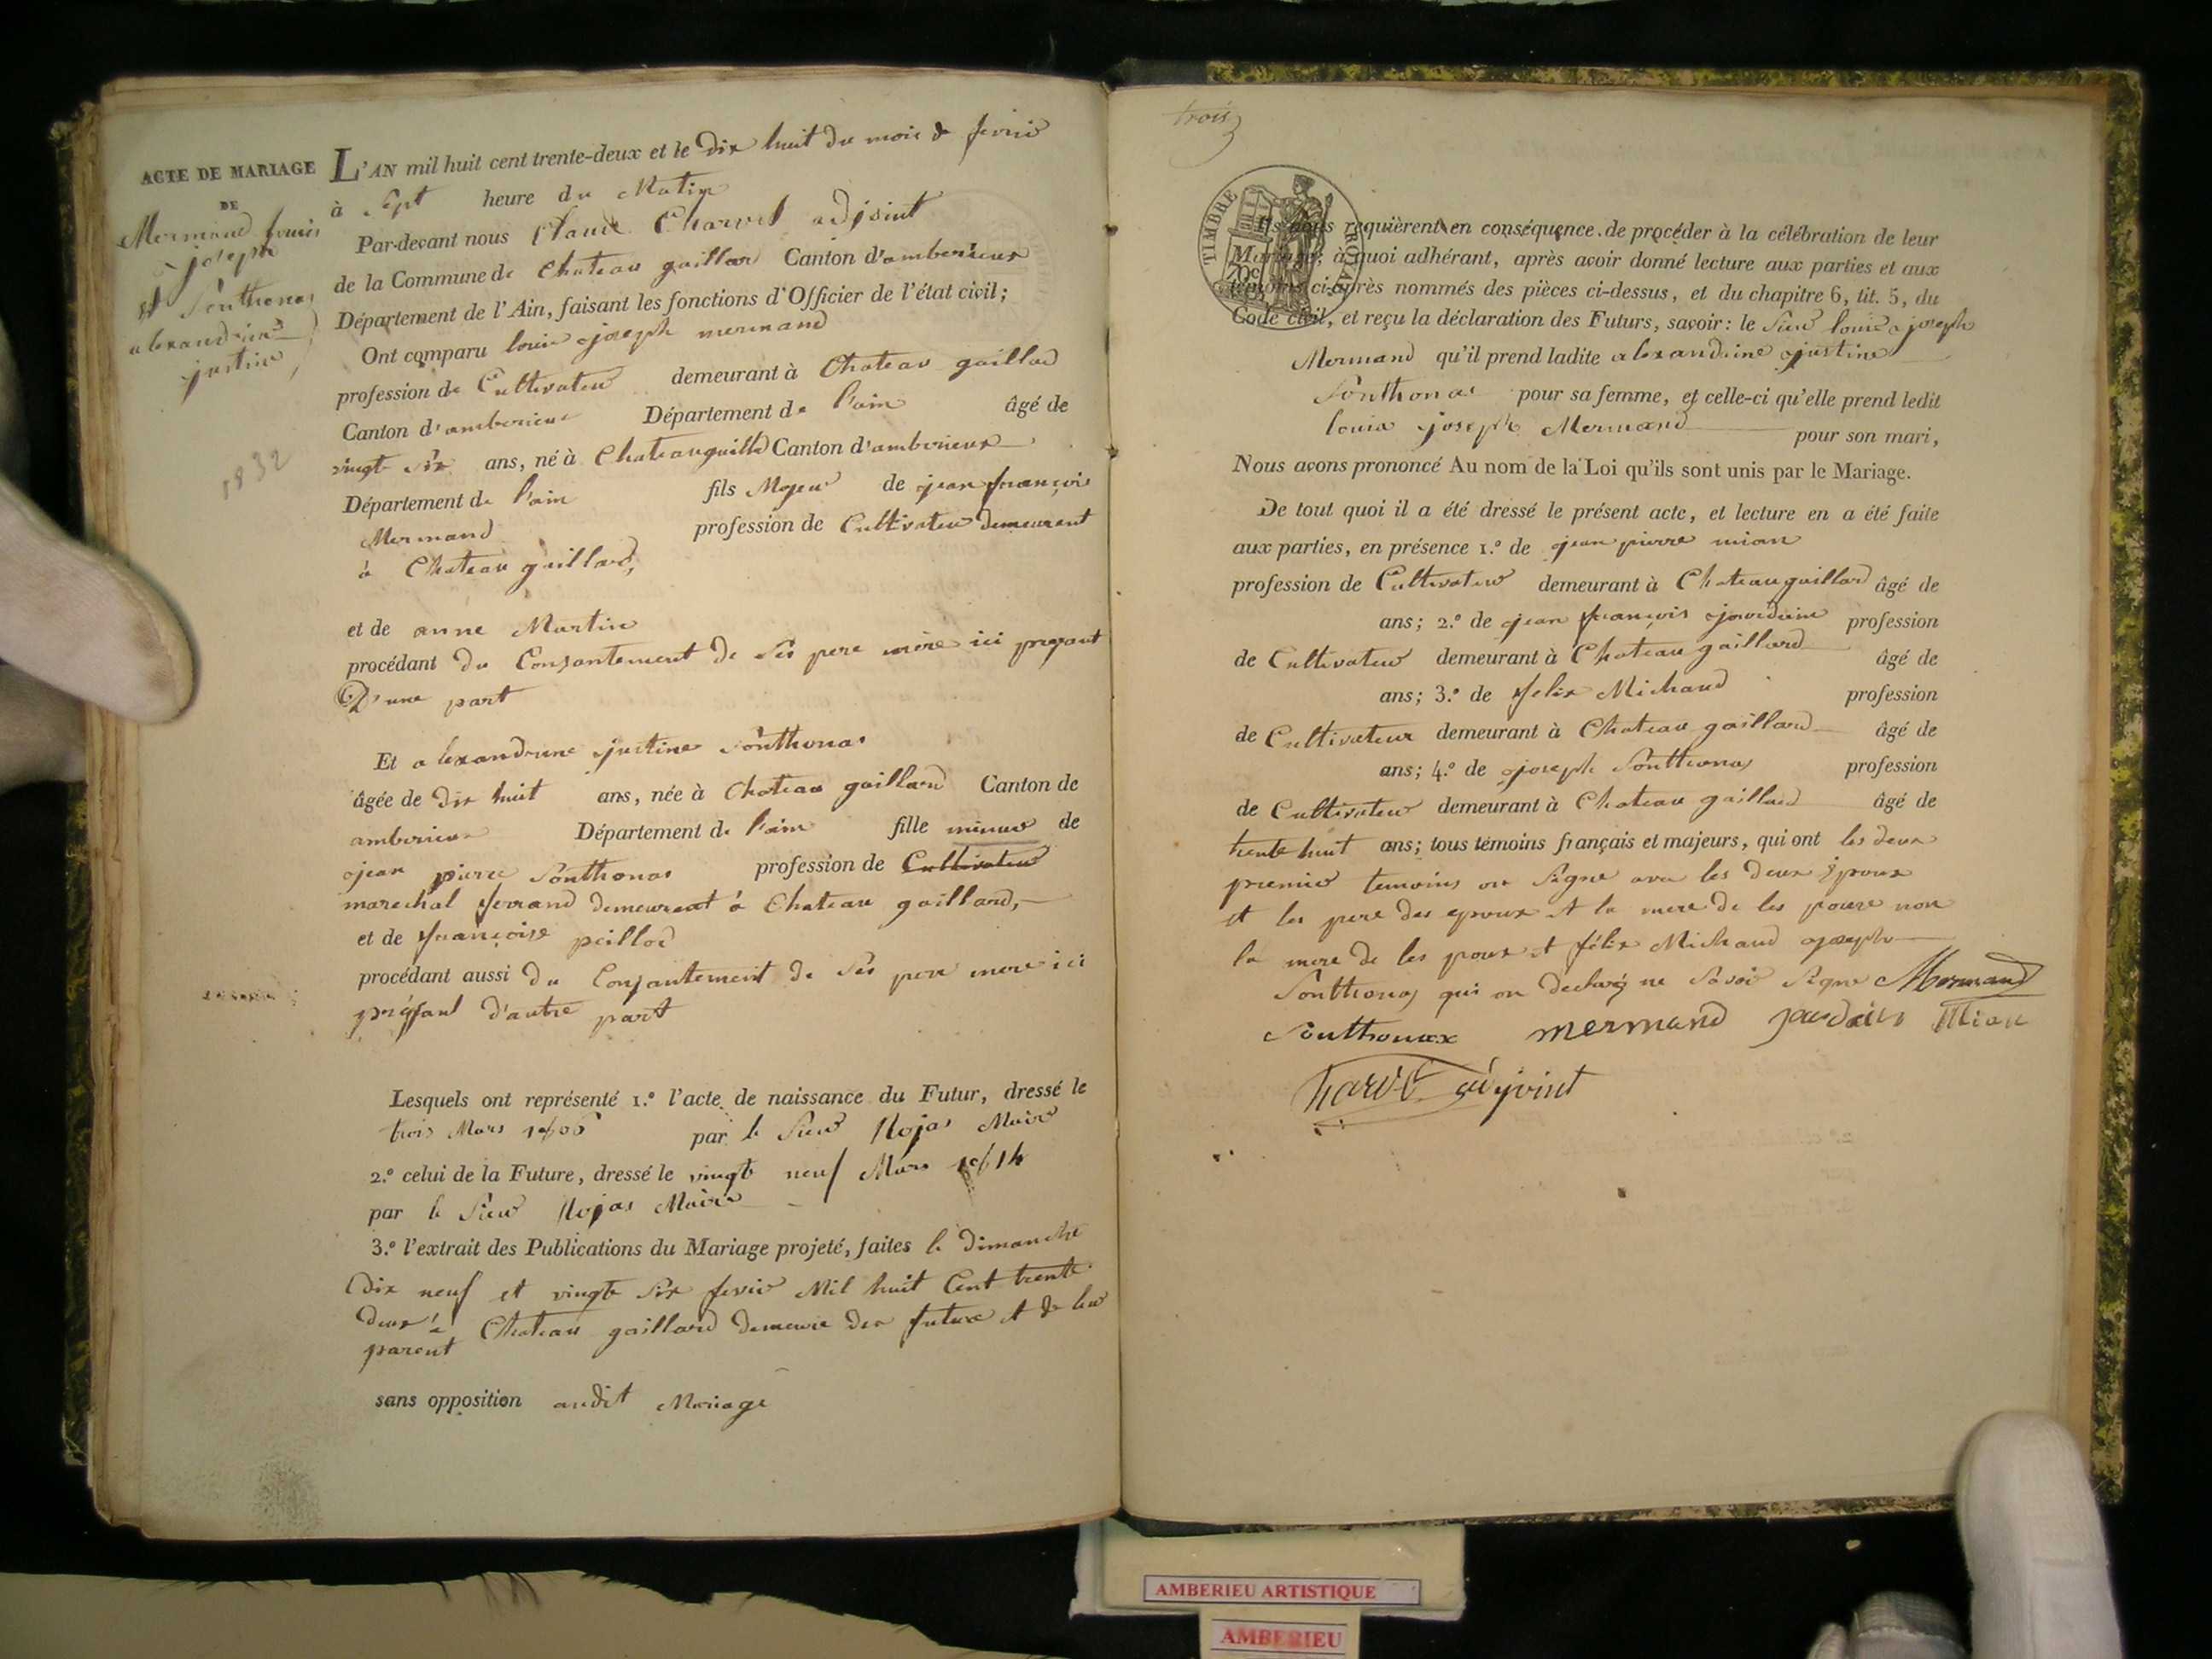 ACTE DE MARIAGE
DE
Mermand louis
joseph
et Sonthonas
alexandrine
justine
1832
L'AN mil huit cent trente-deux et le dix huit du mois de fevrie
à Sept heure du Matin
Par-devant nous Claude Charvet adjoint
de la Commune de Chateau gaillar Canton d'amberieux
Département de l'Ain, faisant les fonctions d'Officier de l'état civil;
Ont comparu louis joseph mermand
profession de Cultivateur demeurant à Chateau gaillad
Canton d'amberieux Département de l'ain âgé de
vingt six ans, né à Chateaugailld Canton d'amberieux
Département de l'ain fils Majeur de jean françois
Mermand profession de Cultivateur demeurant
à Chateau gaillard,
et de anne Martin
procédant du Consantement de Ses pere mère ici presant
D'une part
Et alexandrine justine Sonthonas
âgée de dix huit ans, née à Chateau gaillard Canton de
amberieux Département de l'ain fille mineur de
jean pierre Sonthonas profession de Cultivateur
marechal ferrand demeurant à Chateau gaillard,
et de françoise peillod
procédant aussi du Consantement de Ses pere mere ici
présant d'autre part
Lesquels ont représenté 1.º l'acte de naissance du Futur, dressé le
trois Mars 1806 par le Sieur Rojas Maire
2.º celui de la Future, dressé le vingt neuf Mars 1814
par le Sieur Rojas Maire
3.º l'extrait des Publications du Mariage projeté, faites le dimanche
Dix neuf et vingt Six fevrie Mil huit Cent trente
deux à Chateau gaillard demeure des future et de leur
parent
sans opposition audit Mariage
trois
TIMBRE ROYAL
70c
Ils nous requièrent en conséquence de procéder à la célébration de leur
Mariage; à quoi adhérant, après avoir donné lecture aux parties et aux
témoins ci-après nommés des pièces ci-dessus, et du chapitre 6, tit. 5, du
Code civil, et reçu la déclaration des Futurs, savoir: le Sieur louis joseph
Mermand qu'il prend ladite alexandrine justine
Sonthonas pour sa femme, et celle-ci qu'elle prend ledit
louis joseph Mermand pour son mari,
Nous avons prononcé Au nom de la Loi qu'ils sont unis par le Mariage.
De tout quoi il a été dressé le présent acte, et lecture en a été faite
aux parties, en présence 1.º de jean pierre mian
profession de Cultivateur demeurant à Chateau gaillard âgé de
ans; 2.º de jean françois jourdain profession
de Cultivateur demeurant à Chateau gaillard âgé de
ans; 3.º de felix Michaud profession
de Cultivateur demeurant à Chateau gaillard âgé de
ans; 4.º de joseph Sonthonas profession
de Cultivateur demeurant à Chateau gaillard âgé de
trente huit ans; tous témoins français et majeurs, qui ont les deux
premier temoins on Signe avec les deux époux
et les pere des epoux et la mere de les pouse non
la mere de les poux et félix Michaud joseph
Sonthonas qui on declaré ne Savoir Signe Mermand
Sonthonax mermand jourdain Mian
Charvet adjoint
AMBERIEU ARTISTIQUE
AMBERIEU